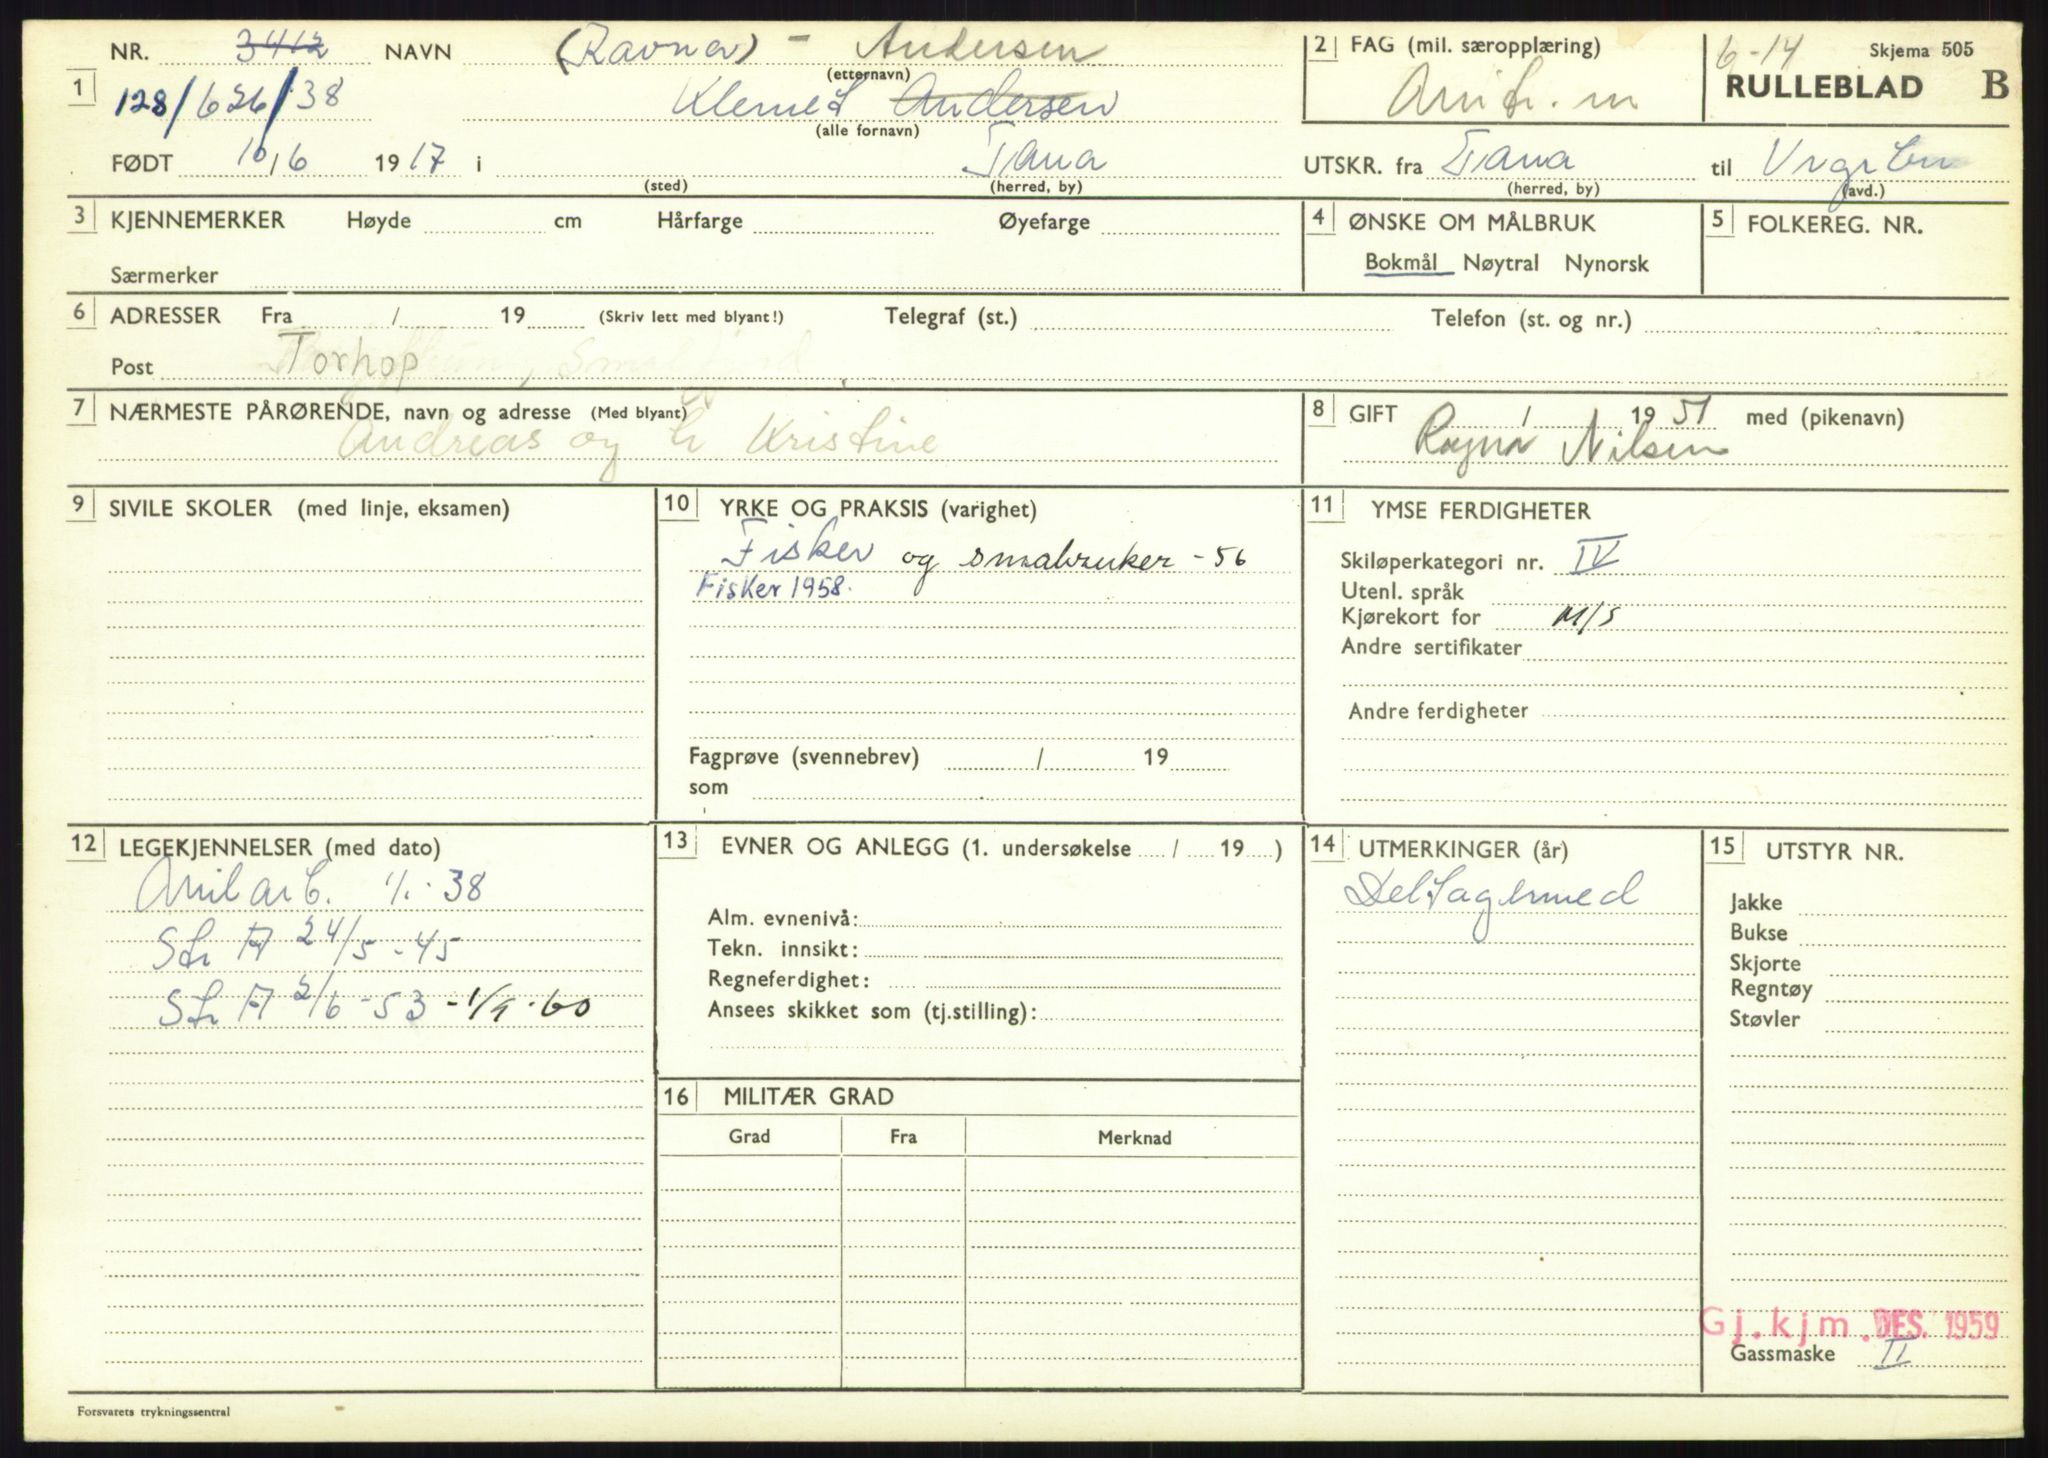 NR. 3412 NAVN (Ravna) - Andersen
(etternavn)
1 128/626/38 Klemet Andersen
(alle fornavn)
FØDT 10/6 1917 i Tana
(sted) (herred, by)
2 FAG (mil. særopplæring)
Mitr. m
6-14 Skjema 505
RULLEBLAD B
UTSKR. fra Tana til
(herred, by) (avd.)
3 KJENNEMERKER Høyde cm Hårfarge Øyefarge
Særmerker
4 ØNSKE OM MÅLBRUK
Bokmål Nøytral Nynorsk
5 FOLKEREG. NR.
6 ADRESSER Fra / 19 (Skriv lett med blyant!) Telegraf (st.) Telefon (st. og nr.)
Post Torhop
7 NÆRMESTE PÅRØRENDE, navn og adresse (Med blyant)
Andreas og h Kristine
8 GIFT / 1951 med (pikenavn)
Ragna Nilsen
9 SIVILE SKOLER (med linje, eksamen)
10 YRKE OG PRAKSIS (varighet)
Fisker og småbruker -56
Fisker 1958.
Fagprøve (svennebrev) / 19
som
11 YMSE FERDIGHETER
Skiløperkategori nr. IV
Utenl. språk
Kjørekort for M/S
Andre sertifikater
Andre ferdigheter
12 LEGEKJENNELSER (med dato)
Milarb. 1/1-38
Str A 24/5-45
Str A 2/6-53 -1/9-60
13 EVNER OG ANLEGG (1. undersøkelse / 19 )
Alm. evnenivå:
Tekn. innsikt:
Regneferdighet:
Ansees skikket som (tj.stilling):
16 MILITÆR GRAD
Grad Fra Merknad
14 UTMERKINGER (år)
Deltagermed
15 UTSTYR NR.
Jakke
Bukse
Skjorte
Regntøy
Støvler
Gj.kjm. DES. 1959
Gassmaske II
Forsvarets trykningssentral